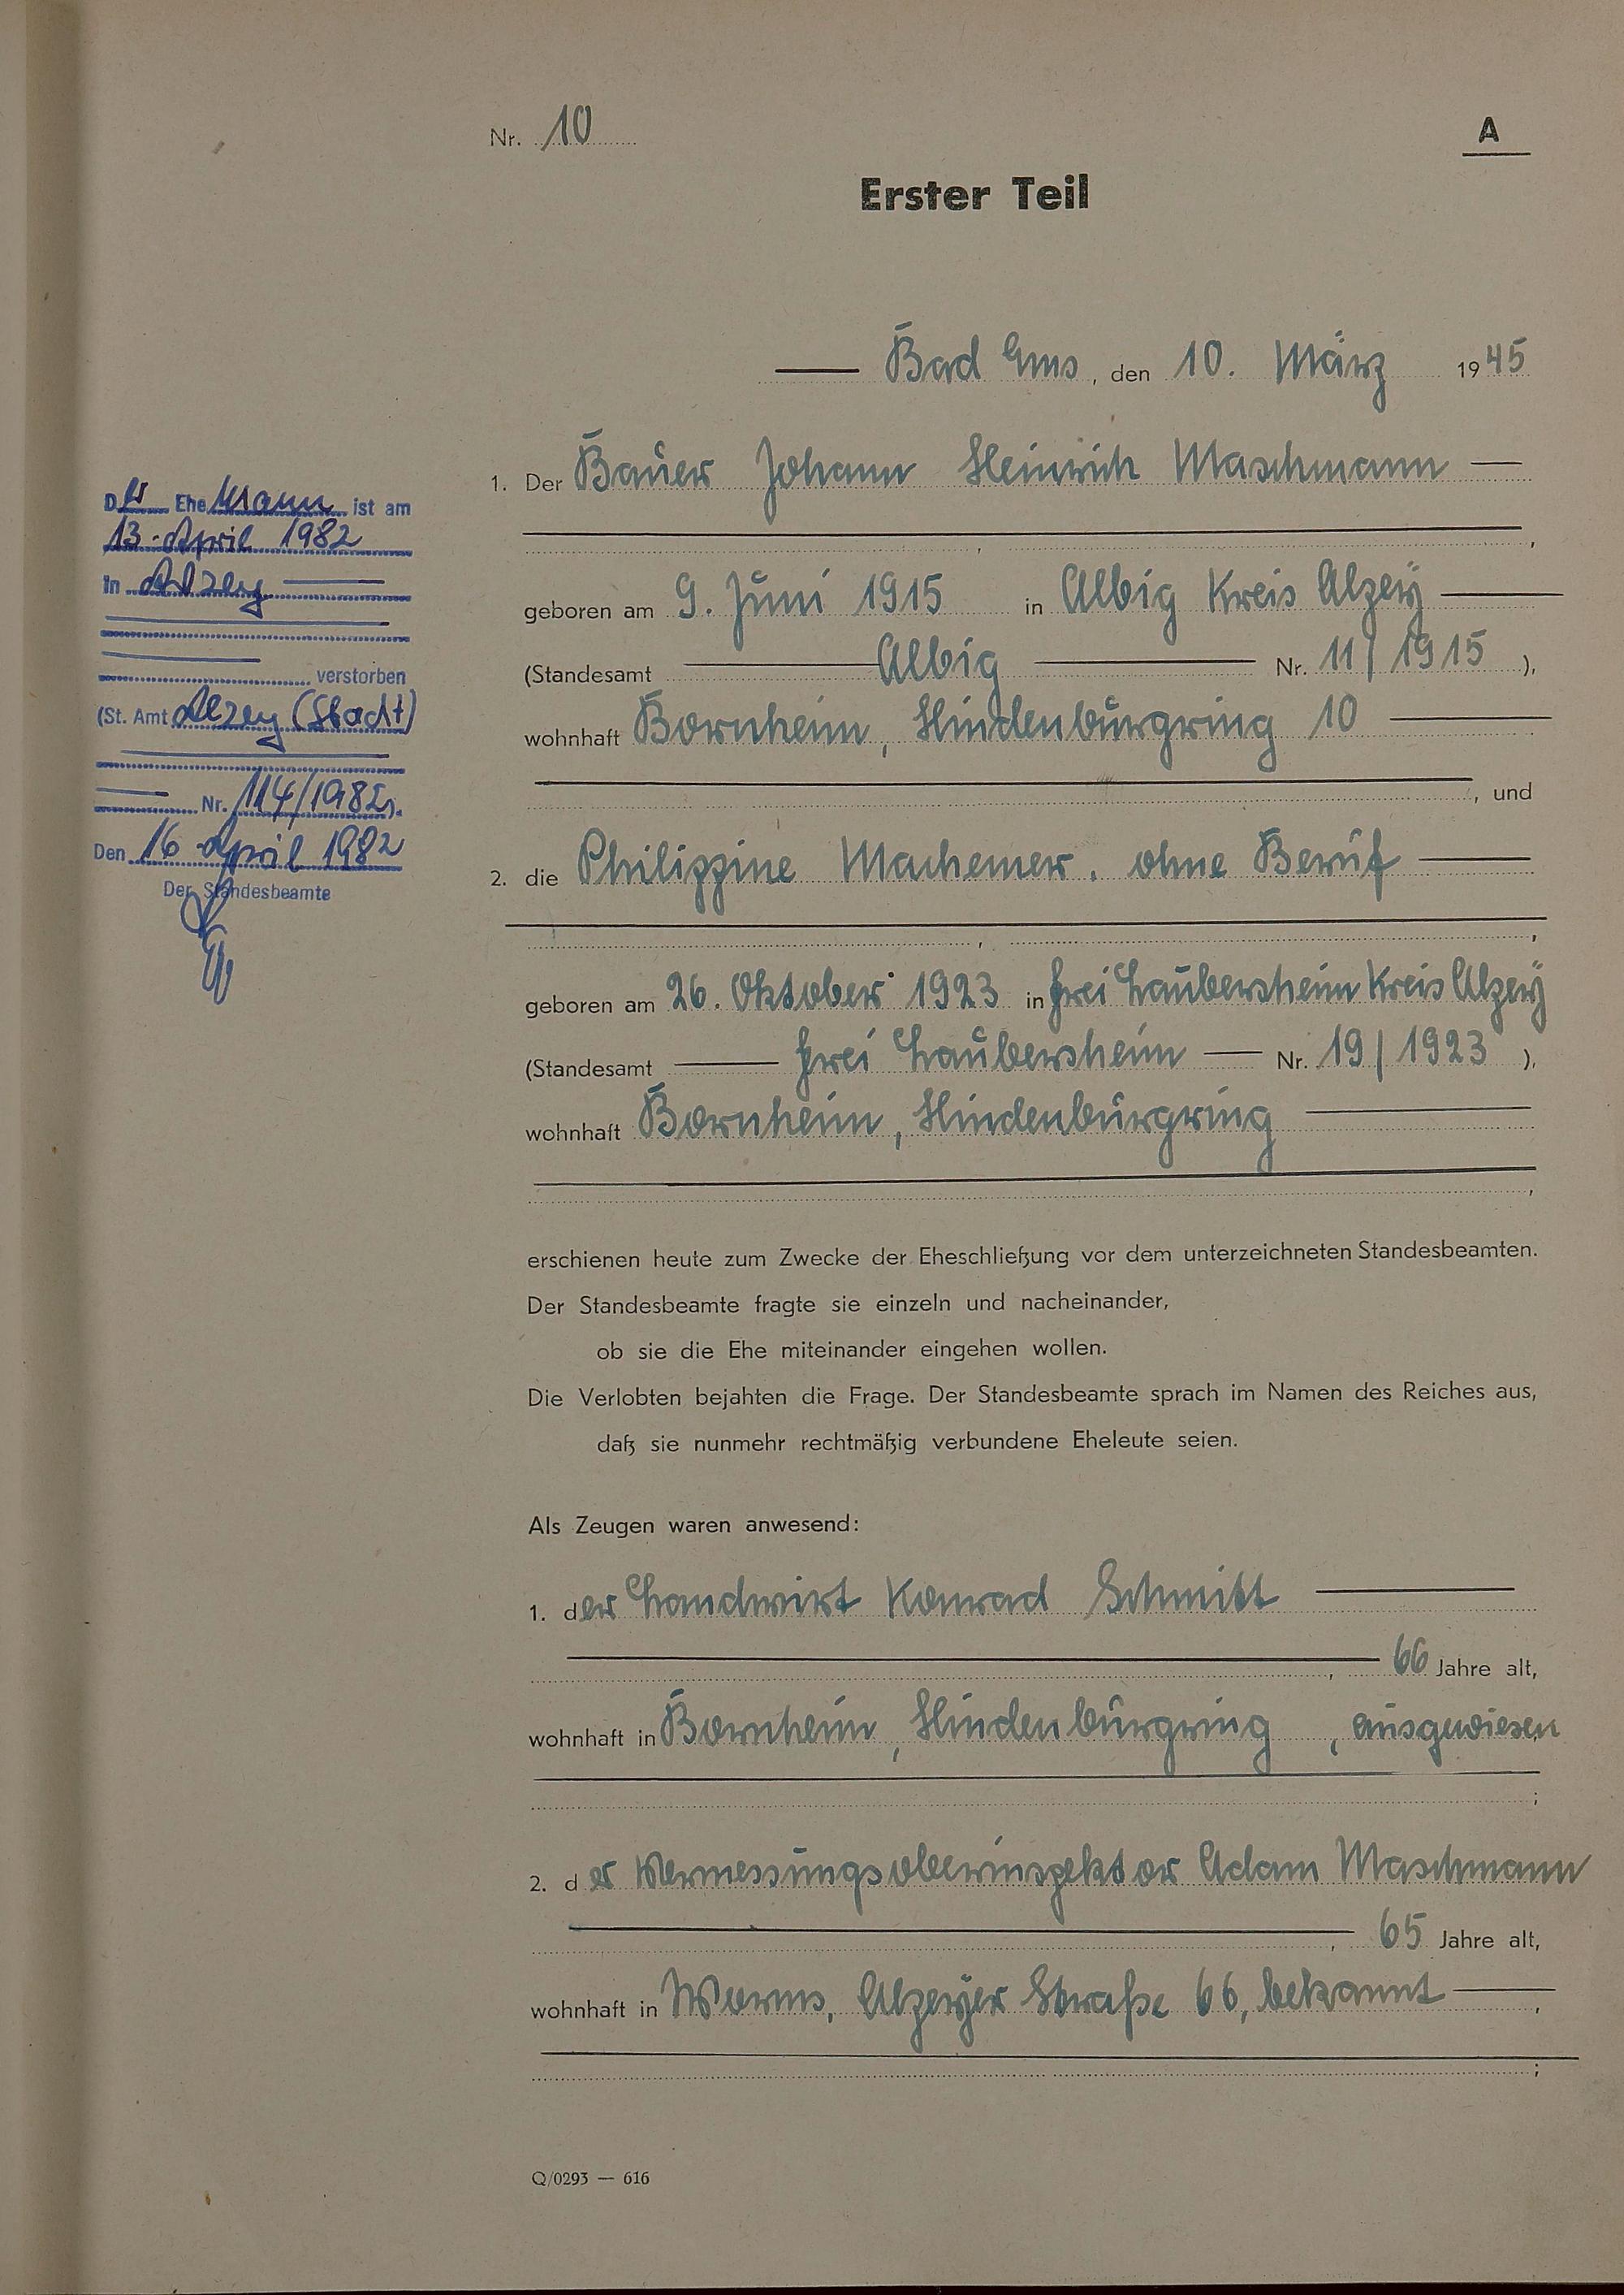 Nr. 10
A
Erster Teil
Bad Ems, den 10. März 1945
1. Der Bauer Johann Heinrich Maschmann
geboren am 9. Juni 1915 in Albig Kreis Alzey
(Standesamt Albig Nr. 11/1915),
wohnhaft Bornheim, Hindenburgring 10
, und
2. die Philippine Machemer, ohne Beruf
geboren am 26. Oktober 1923 in Frei Laubersheim Kreis Alzey
(Standesamt Frei Laubersheim Nr. 19/1923),
wohnhaft Bornheim, Hindenburgring
erschienen heute zum Zwecke der Eheschließung vor dem unterzeichneten Standesbeamten.
Der Standesbeamte fragte sie einzeln und nacheinander,
ob sie die Ehe miteinander eingehen wollen.
Die Verlobten bejahten die Frage. Der Standesbeamte sprach im Namen des Reiches aus,
daß sie nunmehr rechtmäßig verbundene Eheleute seien.
Als Zeugen waren anwesend:
1. der Landwirt Konrad Schmitt
66 Jahre alt,
wohnhaft in Bornheim, Hindenburgring, ausgewiesen
;
2. der Vermessungsoberinspektor Adam Maschmann
65 Jahre alt,
wohnhaft in Worms, Alzeyer Straße 66, bekannt,
;
Q/0293 — 616
Der Ehemann ist am
13. April 1982
in Alzey
verstorben
(St. Amt Alzey (Stadt)
Nr. 114/1982).
Den 16 April 1982
Der Standesbeamte